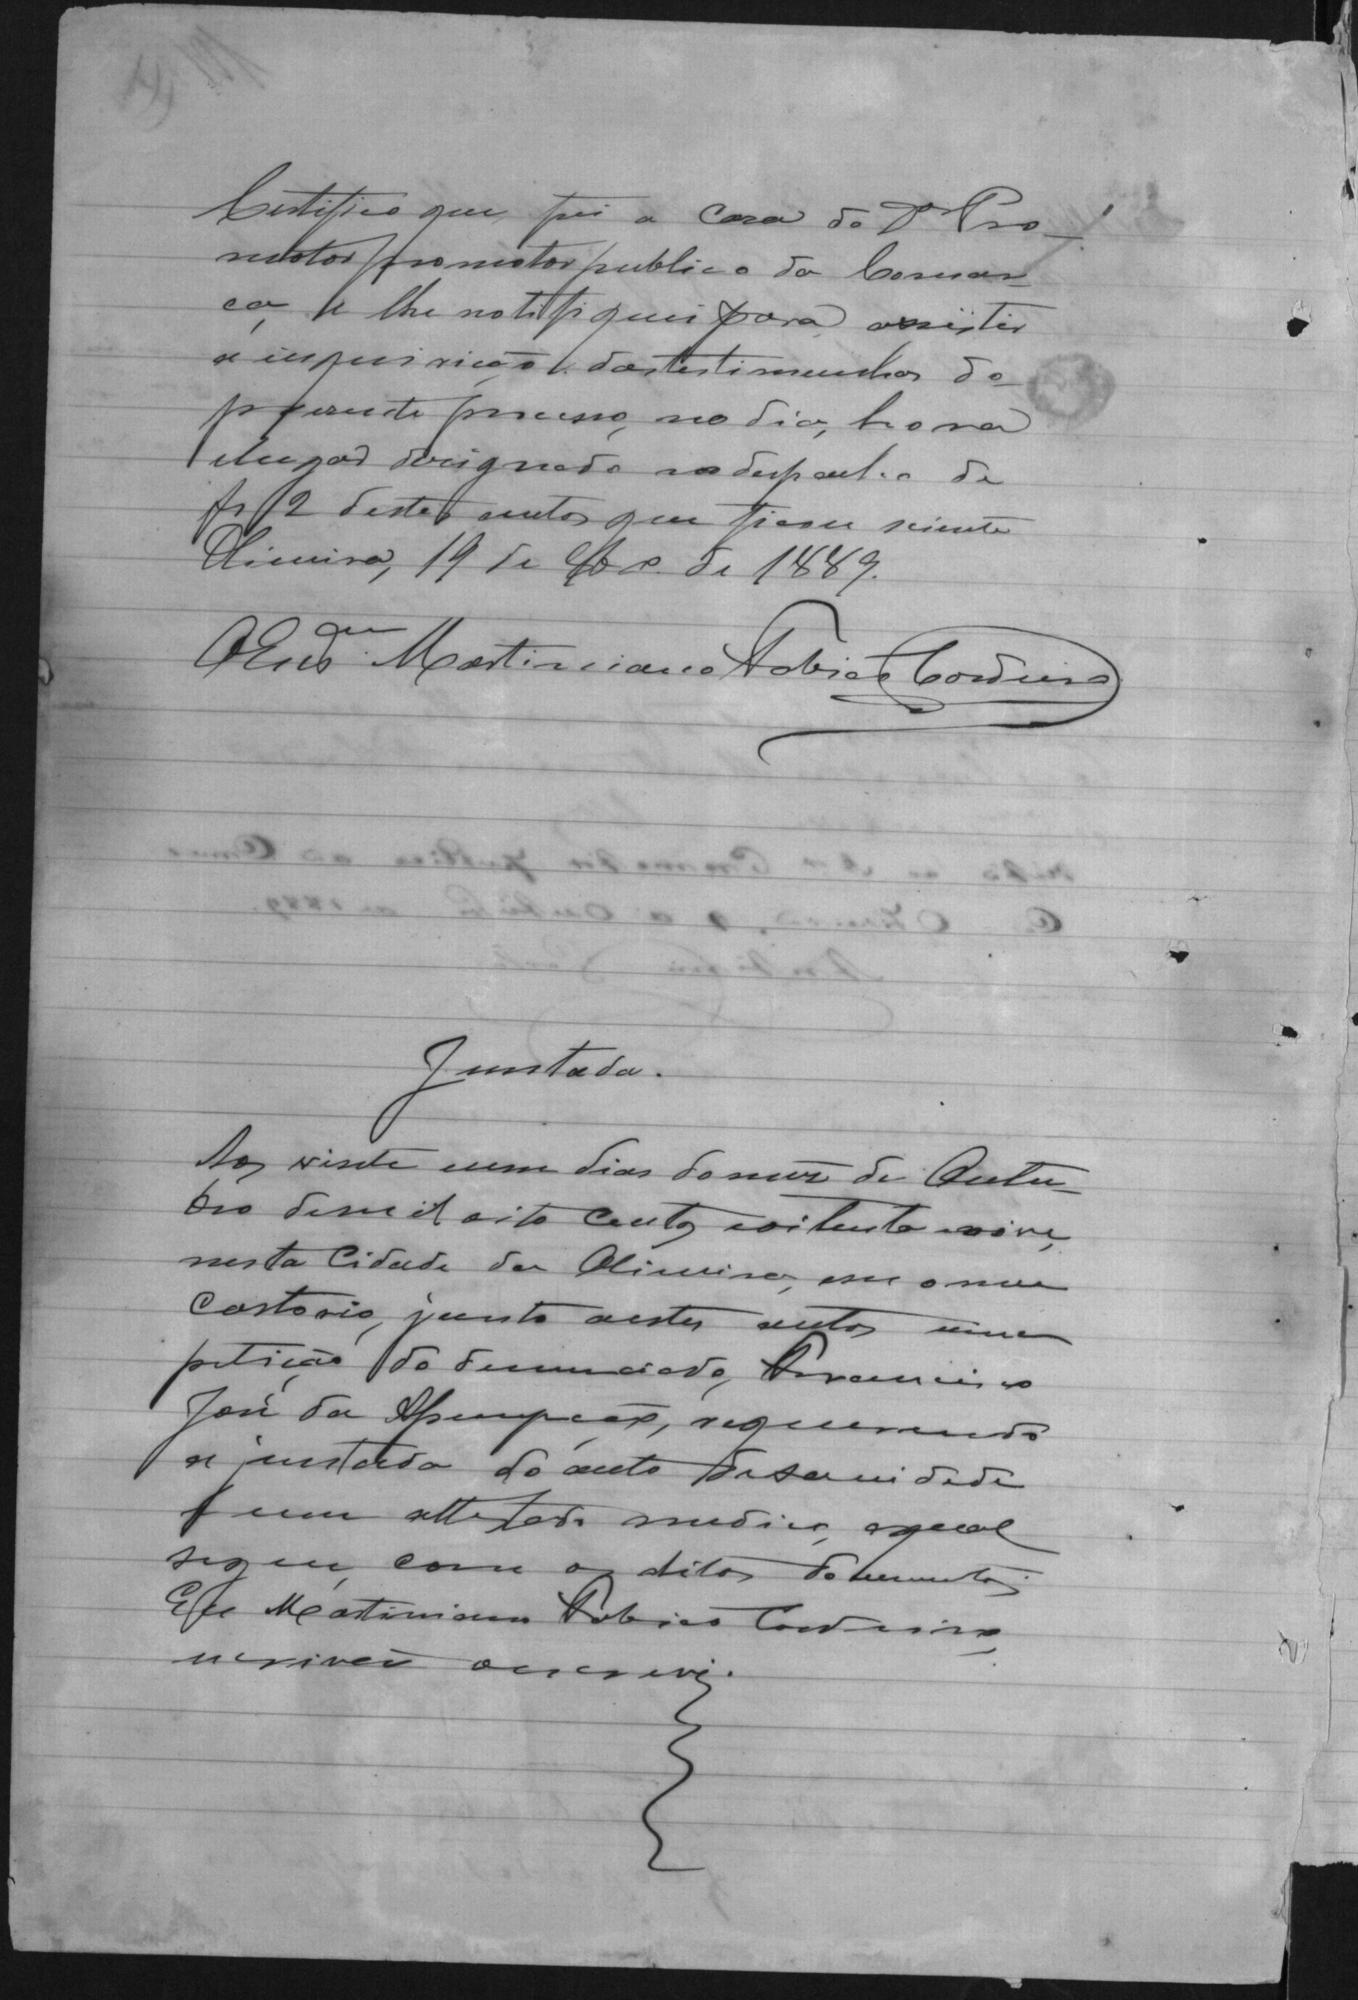 Certifico que fui a casa do Dr Pro-
motor promotor publico da Comar-
ca e lhe notifiquei para assistir
a inquirição das testimunhas do
presente processo, no dia, hora
elugar designado no despacho de
fs 2 destes autos que ficou sciente
Oliveira, 19 de de 1889.
O Escram Martiniano Tobias Cordeiro
Juntada.
Aos vinte eum dias domez de Outu-
bro demil oito centos eoitenta enove,
nesta Cidade da Oliveira, em o meu
cartorio, junto aestes autos uma
petição do denunciado, Francisco
José da Assumpção, requerendo
a juntada do auto desanidade
e um attestado medico, aqual
segue, com os ditos documentos.
Eu Martiniano Tobias Cordeiro,
escrivão oescrevi.